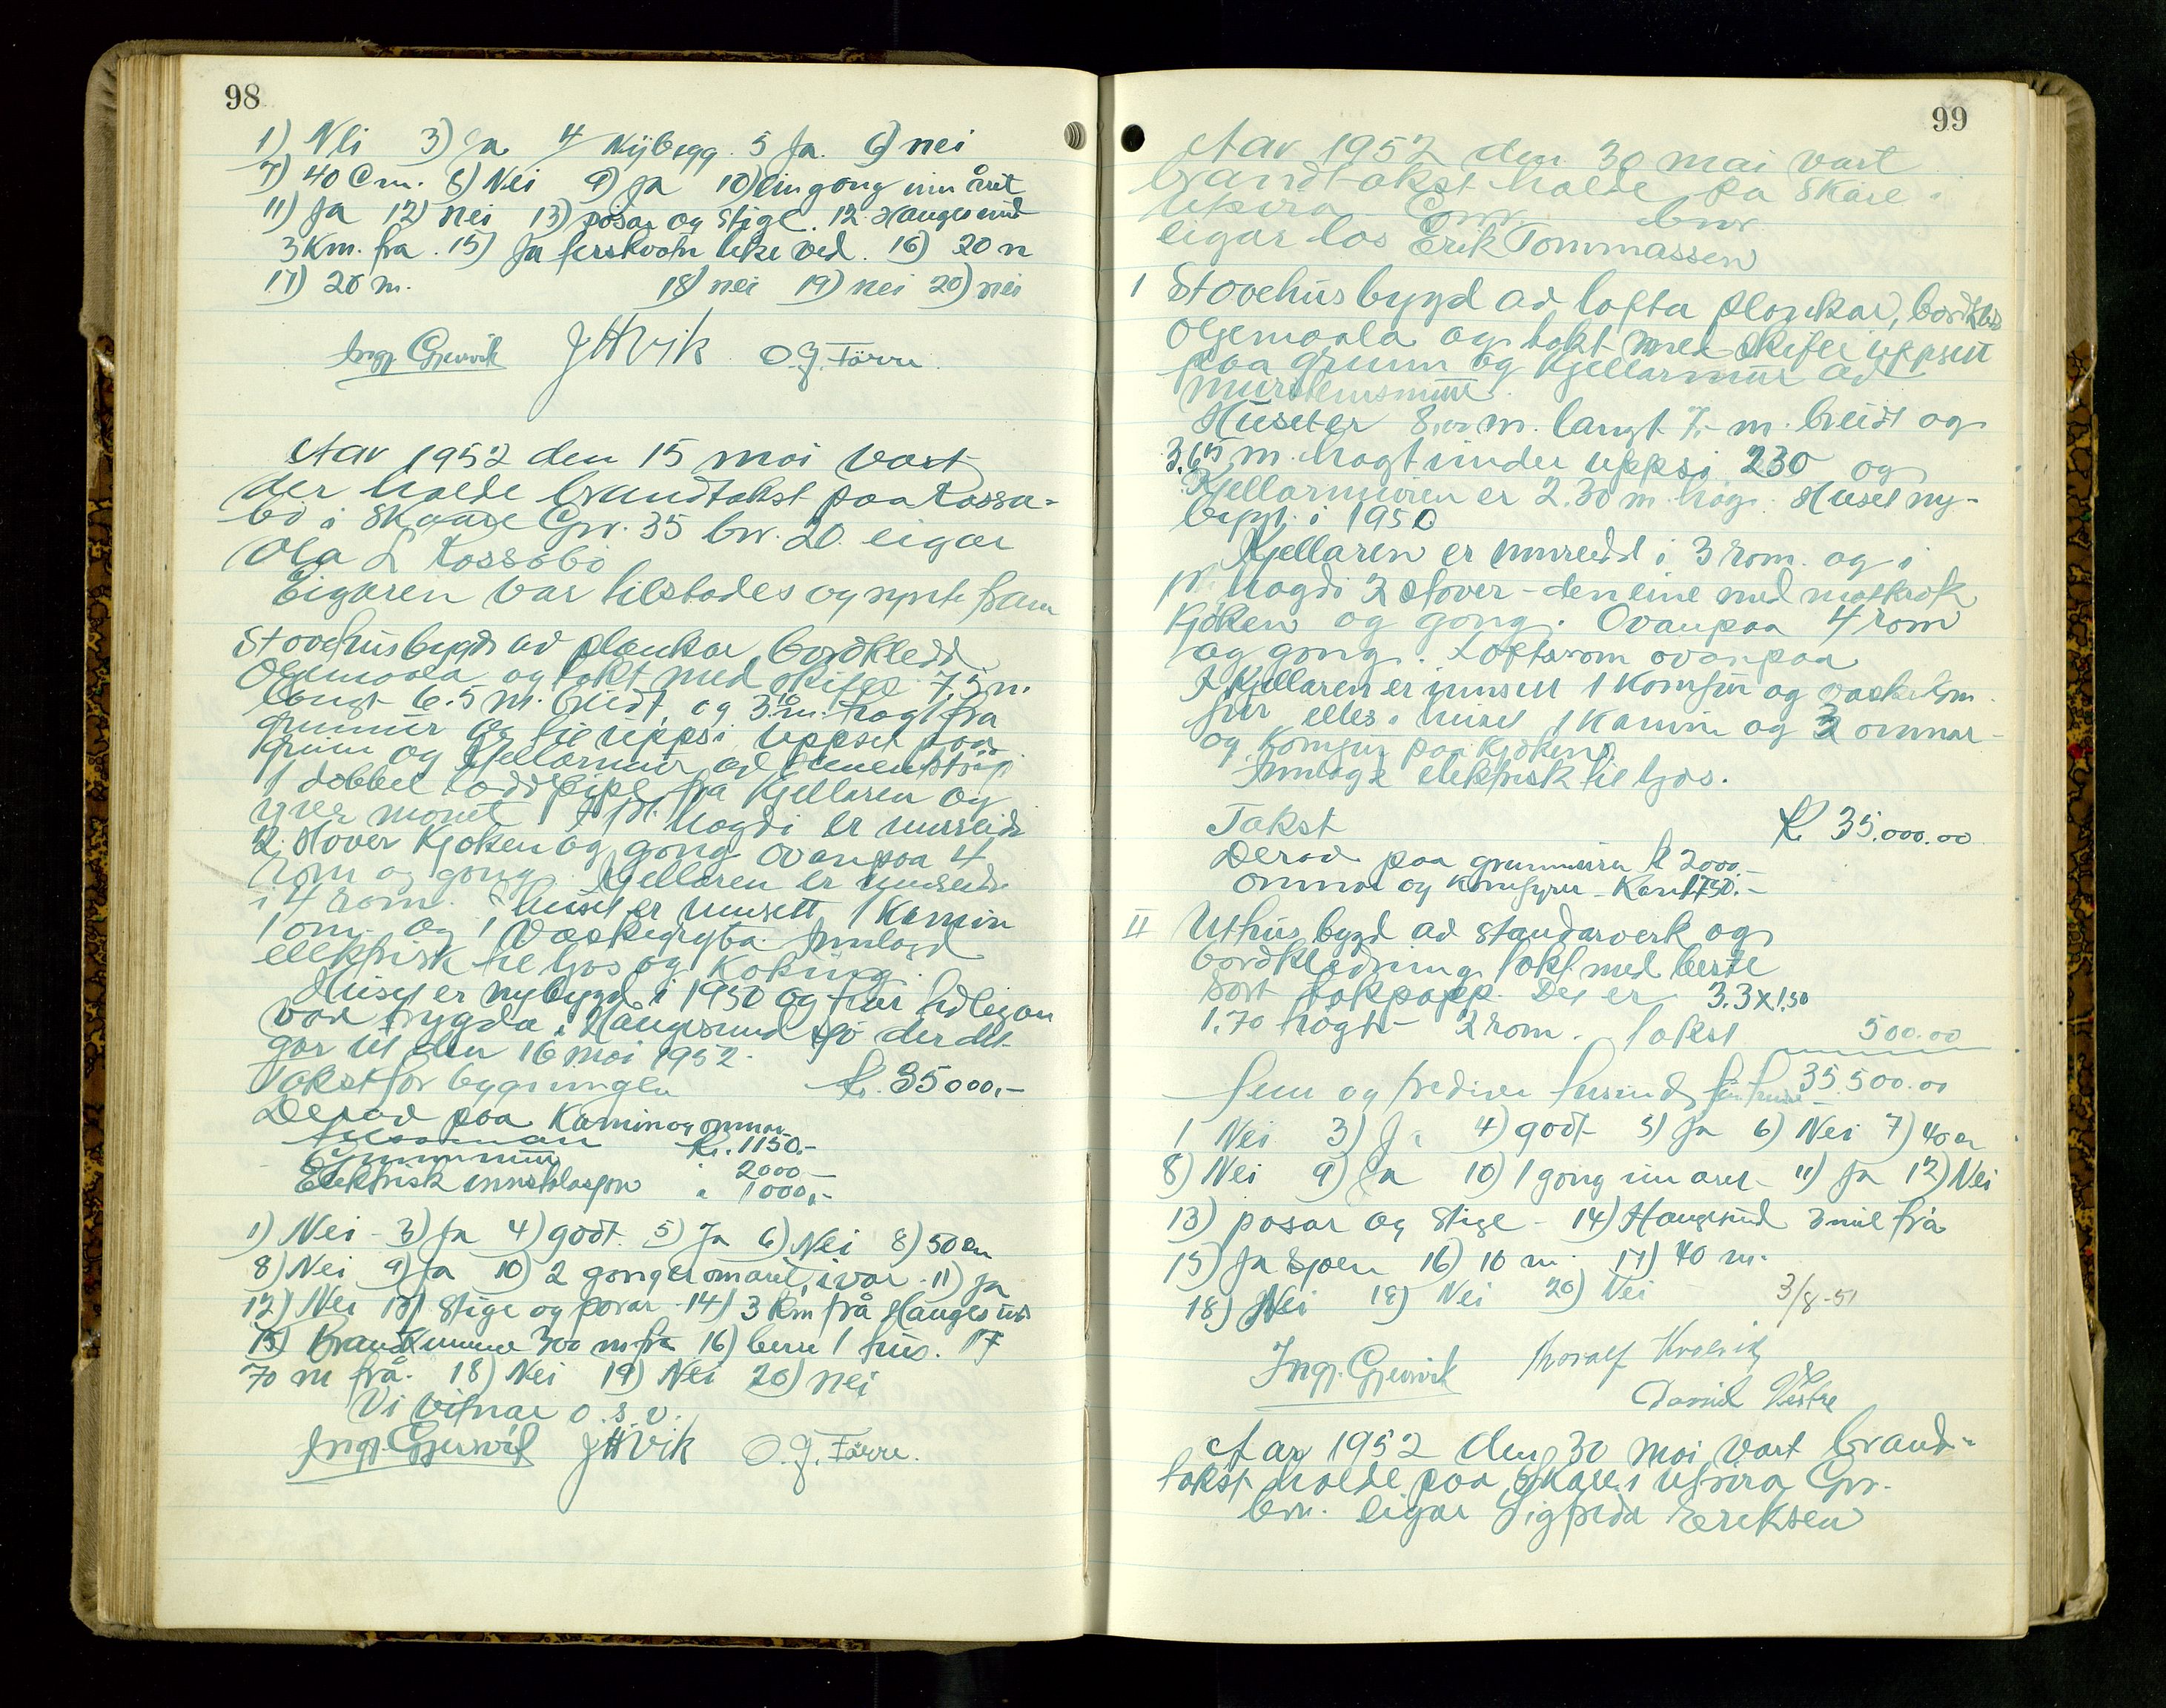 98
1) Nei 3) Ja 4 Nybygg. 5 Ja. 6) nei
7) 40 Cm. 8) Nei 9) Ja 10) ein gong um året
11) Ja 12) nei 13) posar og stige. 12. Haugesund
3 Km. fra. 15) Ja ferskvatn like ved. 16) 20 m
17) 20 m. 18) nei 19) nei 20) nei
Ingj. Gjersvik JH Vik O. J. Førre
Aar 1952 den 15 mai vart
der halde brandtakst paa Rossa-
bö i Skaare Gnr. 35 bnr. 20. eigar
Ola L Rossabö
Eigaren var tilstades og synte fram
Stovehus bygd ad plankar, bordkledd
Oljemaala og takt med skifer 7,5 m.
langt 6.5 m. breidt, og 3.10 m. hogt fra
grunmur og til uppsi uppset paa
grunn og Kjellarmur ad sement
1 dobbel pipe fra Kjellaren og
yver monet I fyr. hogdi er innreide
2. stover Kjøken og gong ovanpaa 4
rom og gong. Kjellaren er innreide
i 4 rom. I huset er innsett 1 Kamin
1 omn og 1 Vaskegryta. Innlagd
elektrisk til ljos og Koking.
Huset er nybygd i 1950 og har tidlegare
vore trygda i Haugesund der det
gar ut den 16 mai 1952.
Takst for bygningen kr. 35000,-
Derad paa Kamin og omnar
Kr. 1150.-
Grunnmur 2000-
Elektrisk innstalasjon " 1000,-
1) Nei - 3) Ja 4) godt. 5) Ja 6) Nei 8) 50 cm
8) Nei 9) Ja 10) 2 gonger om aaret, i var - 11) Ja
12) Nei 13) Stige og posar - 14) 3 Km frå Haugesund
15) Brandkumme 300 m fra 16) berre 1 hus. 17
70 m frå. 18) Nei 19) Nei 20) nei
Vi vitnar o. s. v.
Ingj. Gjersvik JH Vik O. J. Førre.
99
Aar 1952 den 30 mai vart
brandtakst halde pa Skare i
Utsira Gnr. bnr.
eigar los Erik Tommassen
1 Stovehus bygd ad lafta plankar, bordkledd
Oljemaala og takt med skifer uppsett
paa grunn og Kjellarmur ad
mursteinsmur.
Huset er 8,00 m. langt 7,- m. breidt og
3.65 m. hogt under uppsi 230 og
Kjellarmuren er 2.30 m. høg. Huset ny-
bygt i 1950
Kjellaren er innreidd i 3 rom. og i
fyr. hogdi 2 stover - den eine med matkrok
Kjøken og gong. Ovanpaa 4 rom
og gong. Loftsrom ovanpaa
I Kjellaren er innsett 1 Komfur og vaskekom
fur elles i huset 1 Kamin og 2 omnar -
og Komfur paa Kjøkenet
Innlagt elektrisk til ljos.
Takst kr. 35.000.00
Derad paa grunmuren kr 2000.-
omnar og komfyrer - Kamin 1750.-
II Uthus bygd ad standarverk og
bordkledning takt med beste
sort takpapp. Det er 3.3 x 1.50
1.70 høgt - 2 rom. takst 500.00
Fem og tredive tusind fem hundre 35.500.00
1 Nei 3) Ja 4) godt 5) Ja 6) Nei 7) 40 cm
8) Nei 9) Ja 10) 1 gong um aret - 11) Ja 12) Nei
13) posar og stige - 14) Haugesund 3 mil frå
15) Ja sjøen 16) 10 m. 17) 40 m.
18) Nei 19) Nei 20) Nei 3/8-51
Ingj. Gjersvik Thoralf Kvalvik
David Vestre
Aar 1952 den 30 mai vart brand-
takst halde paa Skare i Utsira Gnr.
bnr. eigar Sigfrida Eriksen